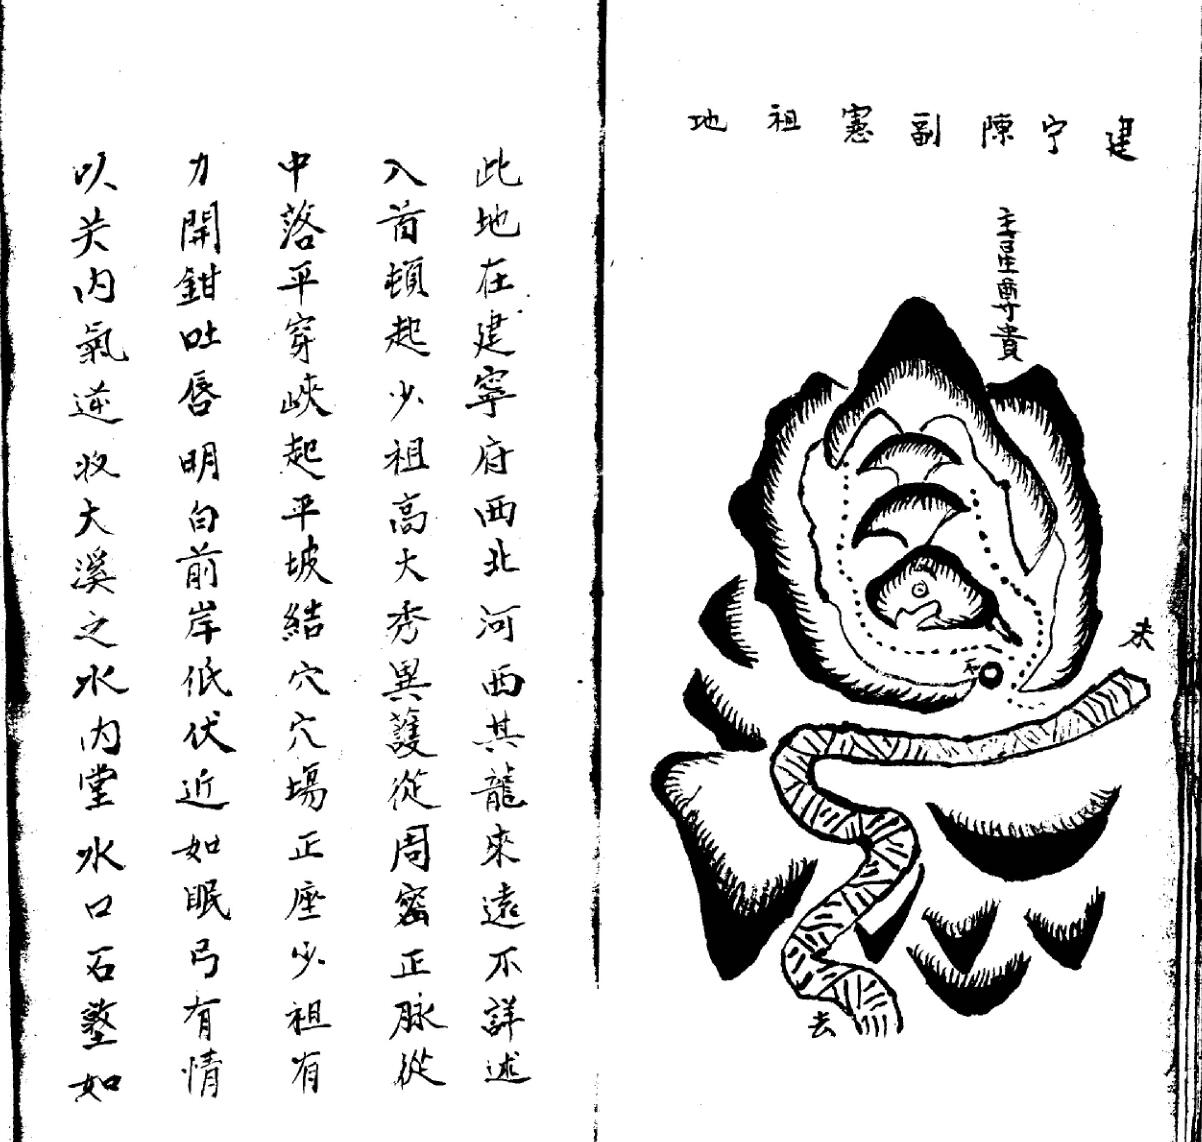 建宁陳副憲祖地
主星尊貴
来
石
去
此地在建寧府西北河西其龍來遠不詳述
入首頓起少祖高大秀異護從周密正脉從
中落平穿峽起平坡結穴穴場正座少祖有
力開鉗吐唇明白前岸低伏近如眠弓有情
以关内氣逆收大溪之水内堂水口石墪如